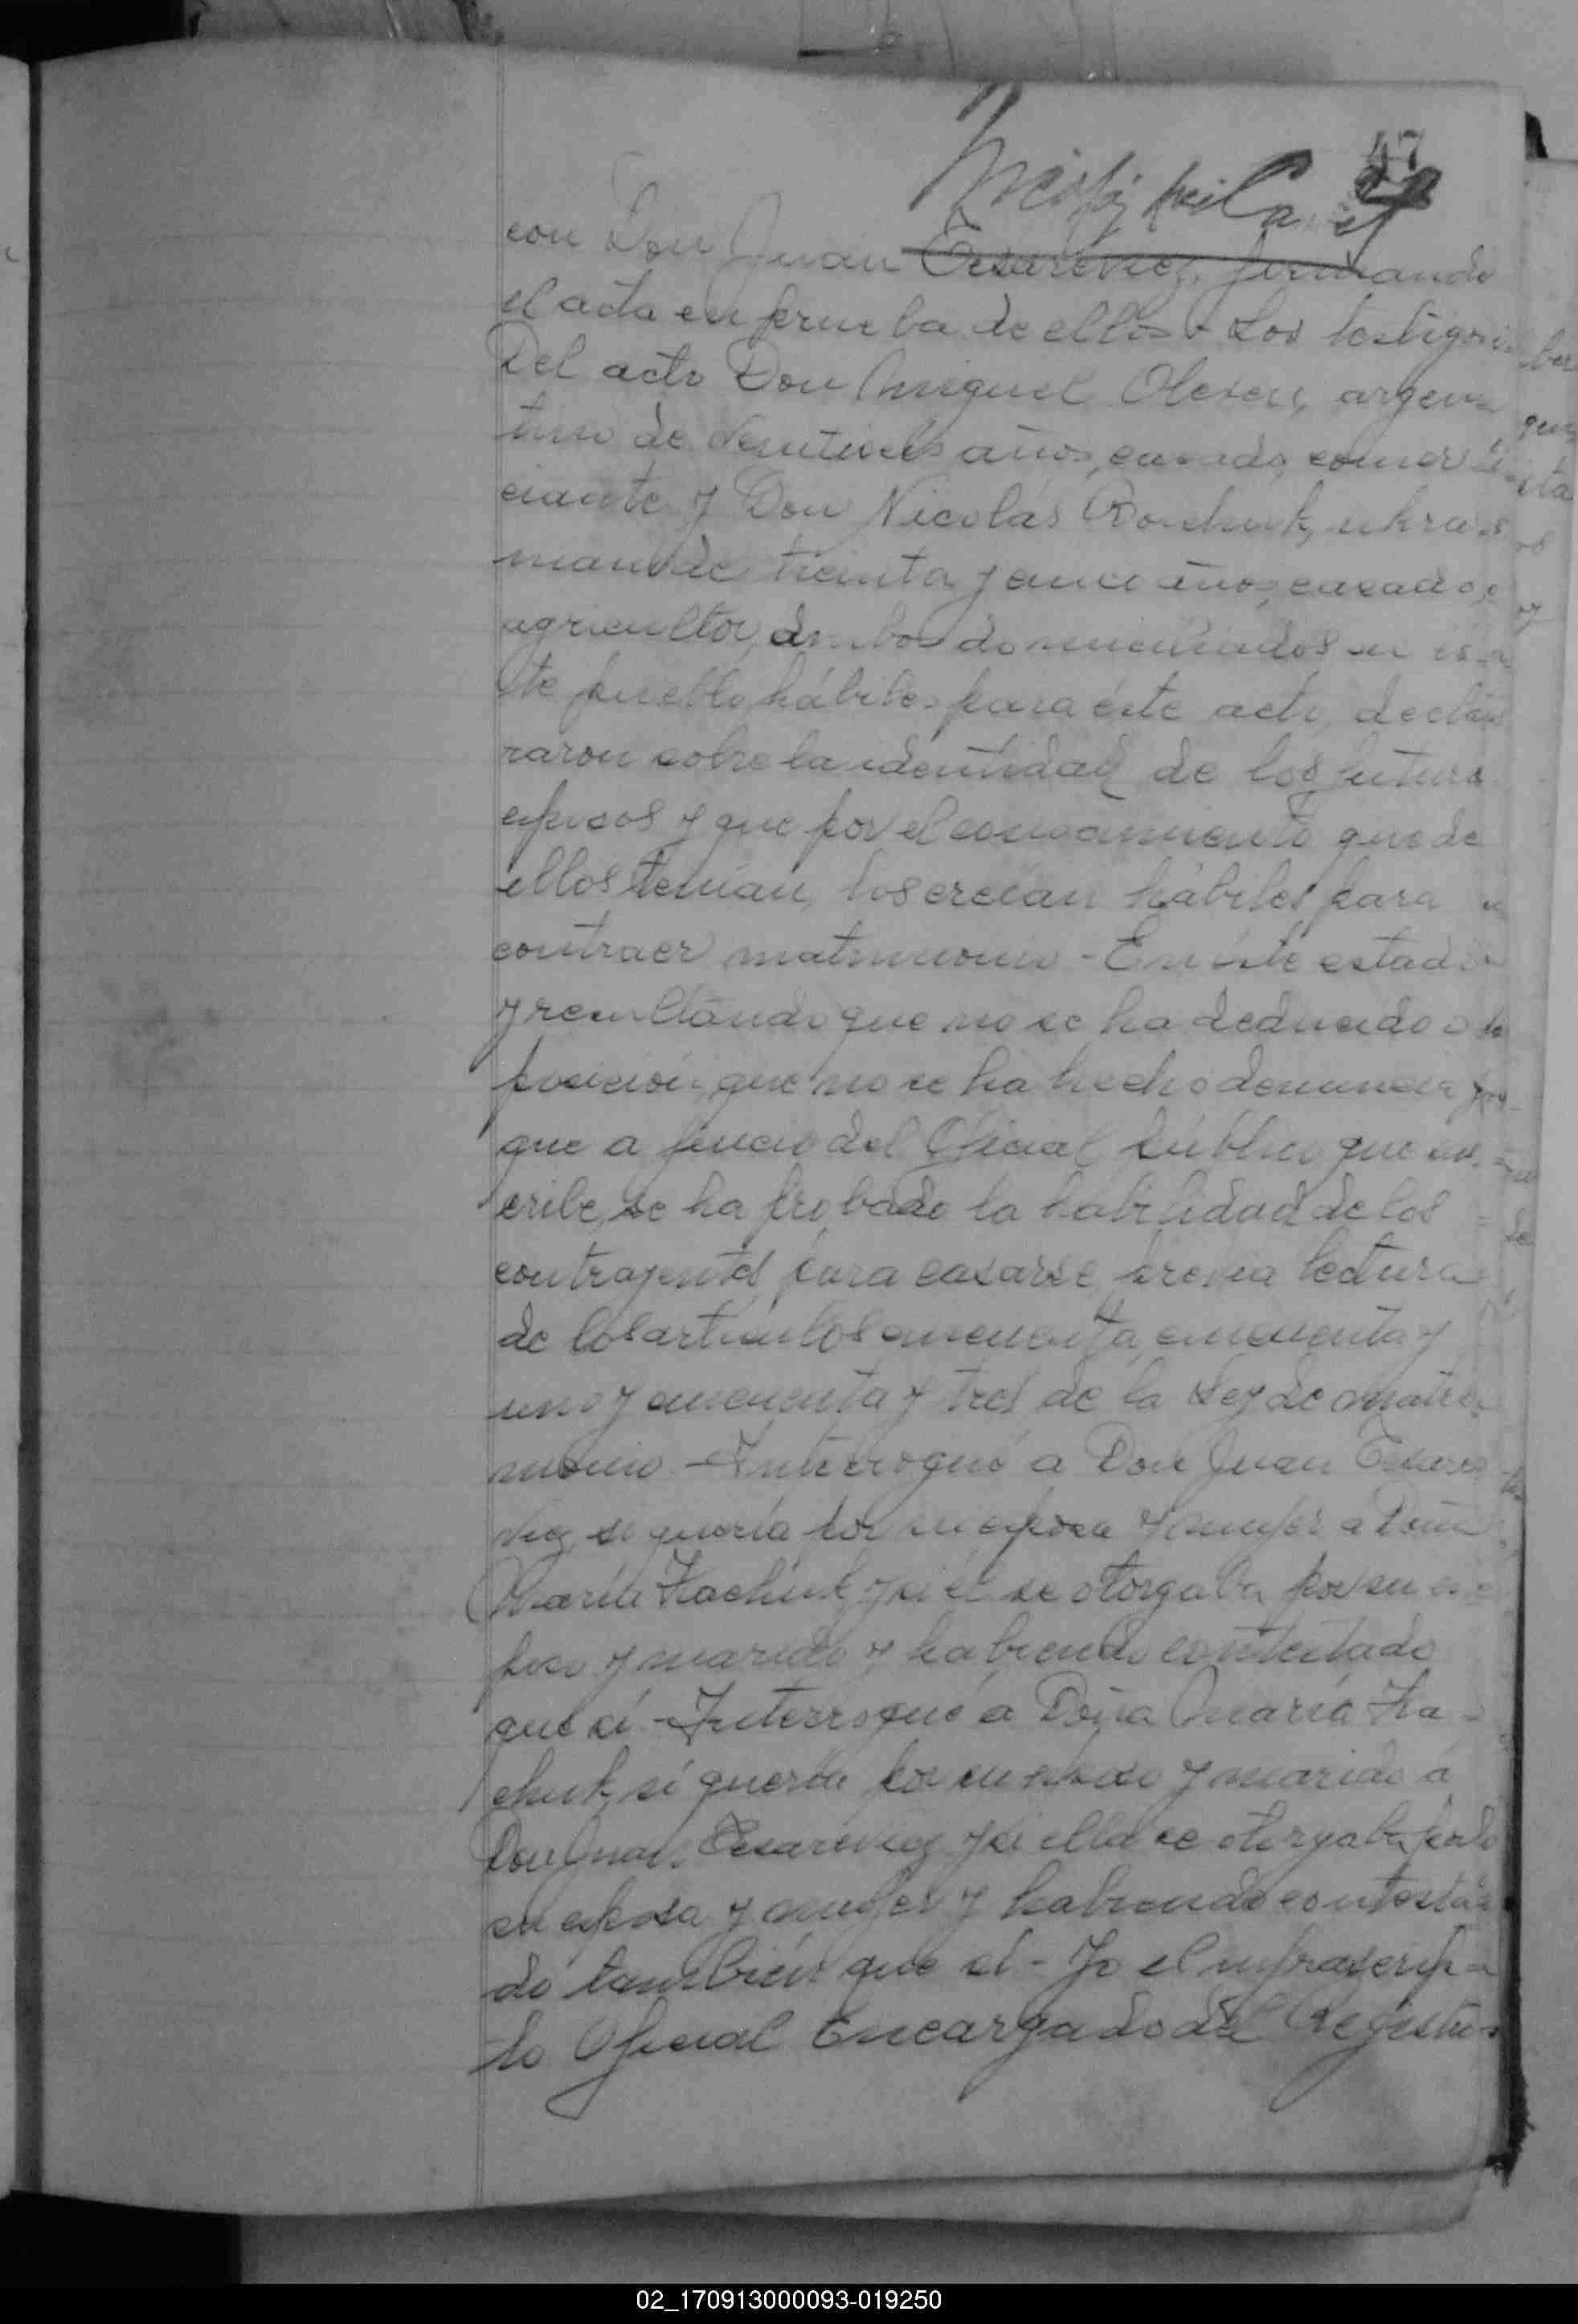 47
con Don Juan Cesarévicz, firmando
el acta en prueba de ello - Los testigos
Del acto Don Miguel Olesen, argen-
tino de años, casado, comer
ciante y Don Nicolás ukra
niano de treinta y años, casado,
agricultor, ambos domiciliados en és-
te pueblo, hábiles para éste acto, decla
raron sobre la identidad de los futuros
esposos y que por el conocimiento que de
ellos tenían, los creían hábiles para
contraer matrimonio - En éste estado
y resultando que no se ha deducido o
posición, que no se ha hecho denuncia y
que a juicio del Oficial Público que sus
cribe, se ha probado la habilidad de los
contrayentes para casarse, previa lectura
de los artículos cincuenta, cincuenta y
uno y cincuenta y tres de la Ley de Matri
monio - Interrogué a Don Juan Cesaré
vicz si quería por su esposa y mujer a Doña
María Kachuk, y si él se otorgaba por su es
poso y marido y habiendo contestado
que sí - Interrogué a Doña María Ka-
chuk, si quería por su esposo y marido a
Don Juan Cesarévicz y si ella se otorgaba por
su esposa y mujer y habiendo contesta
do también que sí - Yo el infrascrip-
to Oficial Encargado del Registro
02_170913000093-019250